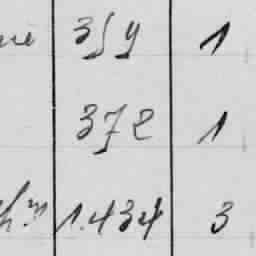 359 1
372 1
1.434 3